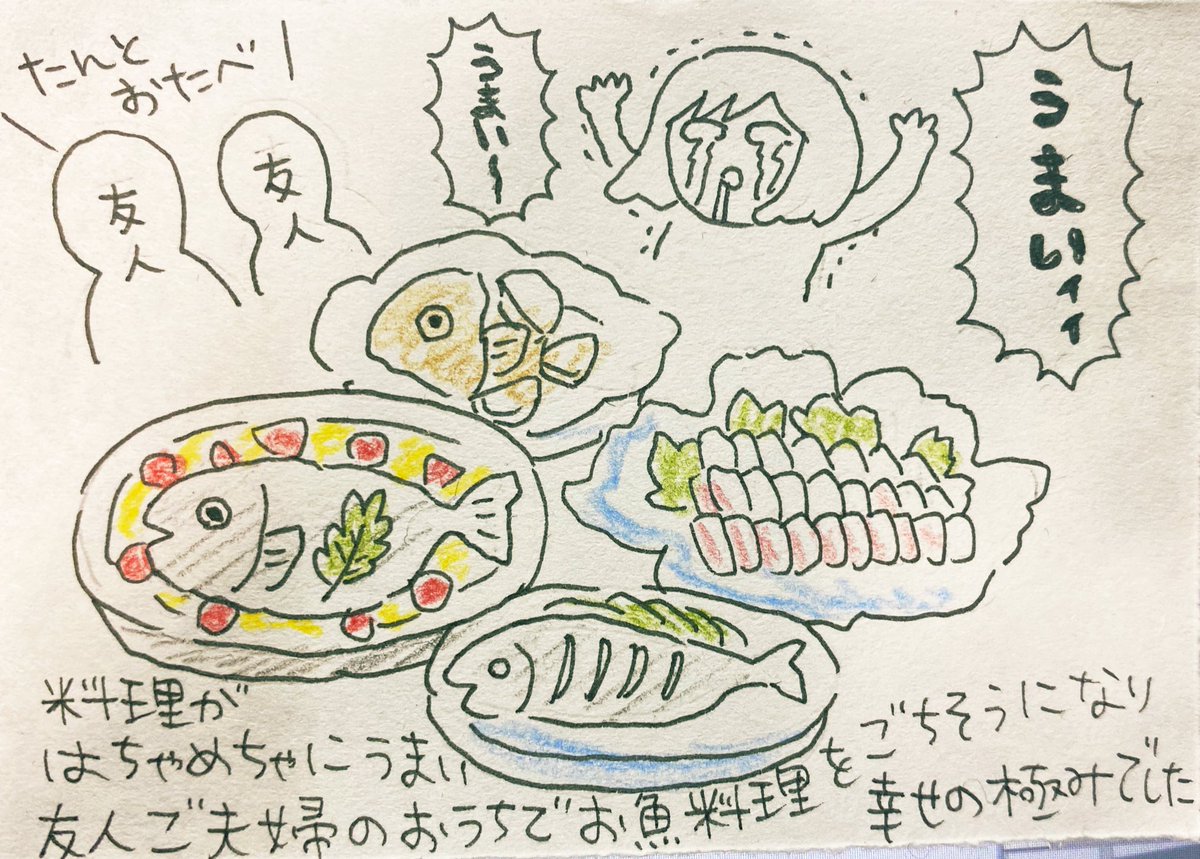 たんと
おたべー
友人
友人
うまいー
うまいィィィ
料理が
はちゃめちゃにうまい
友人ご夫婦のおうちでお魚料理を
ごちそうになり
幸せの極みでした